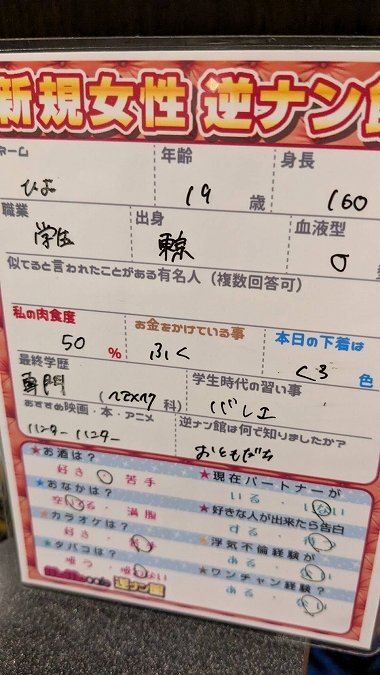 新規女性 逆ナン館
ネーム 年齢 身長
ひな 19 歳 160
職業 出身 血液型
学生 東京 O 型
似てると言われたことがある有名人（複数回答可）
私の肉食度 お金をかけている事 本日の下着は
50 % ふく くろ 色
最終学歴 学生時代の習い事
専門 ( 科) バレエ
おすすめ映画・本・アニメ 逆ナン館は何で知りましたか？
ハンター ハンター おともだち
★お酒は？ ★現在パートナーが
好き 苦手 いる・いない
★おなかは？ ★好きな人が出来たら告白
空いてる・満腹 する・待つ
★カラオケは？ ★浮気不倫経験が
好き・苦手 ある・ない
★タバコは？ ★ワンチャン経験？
吸う・吸わない ある・ない
逆ナン館